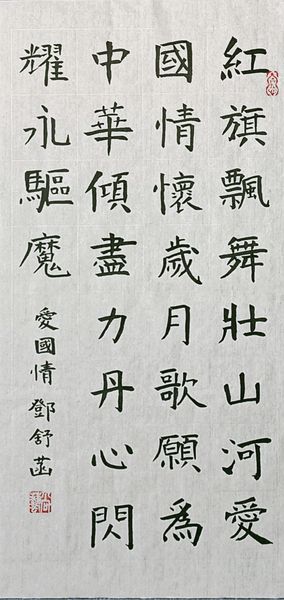 紅旗飄舞壯山河愛
國情懷歲月歌願為
中華傾盡力丹心閃
耀永驅魔
愛國情 鄧舒菡